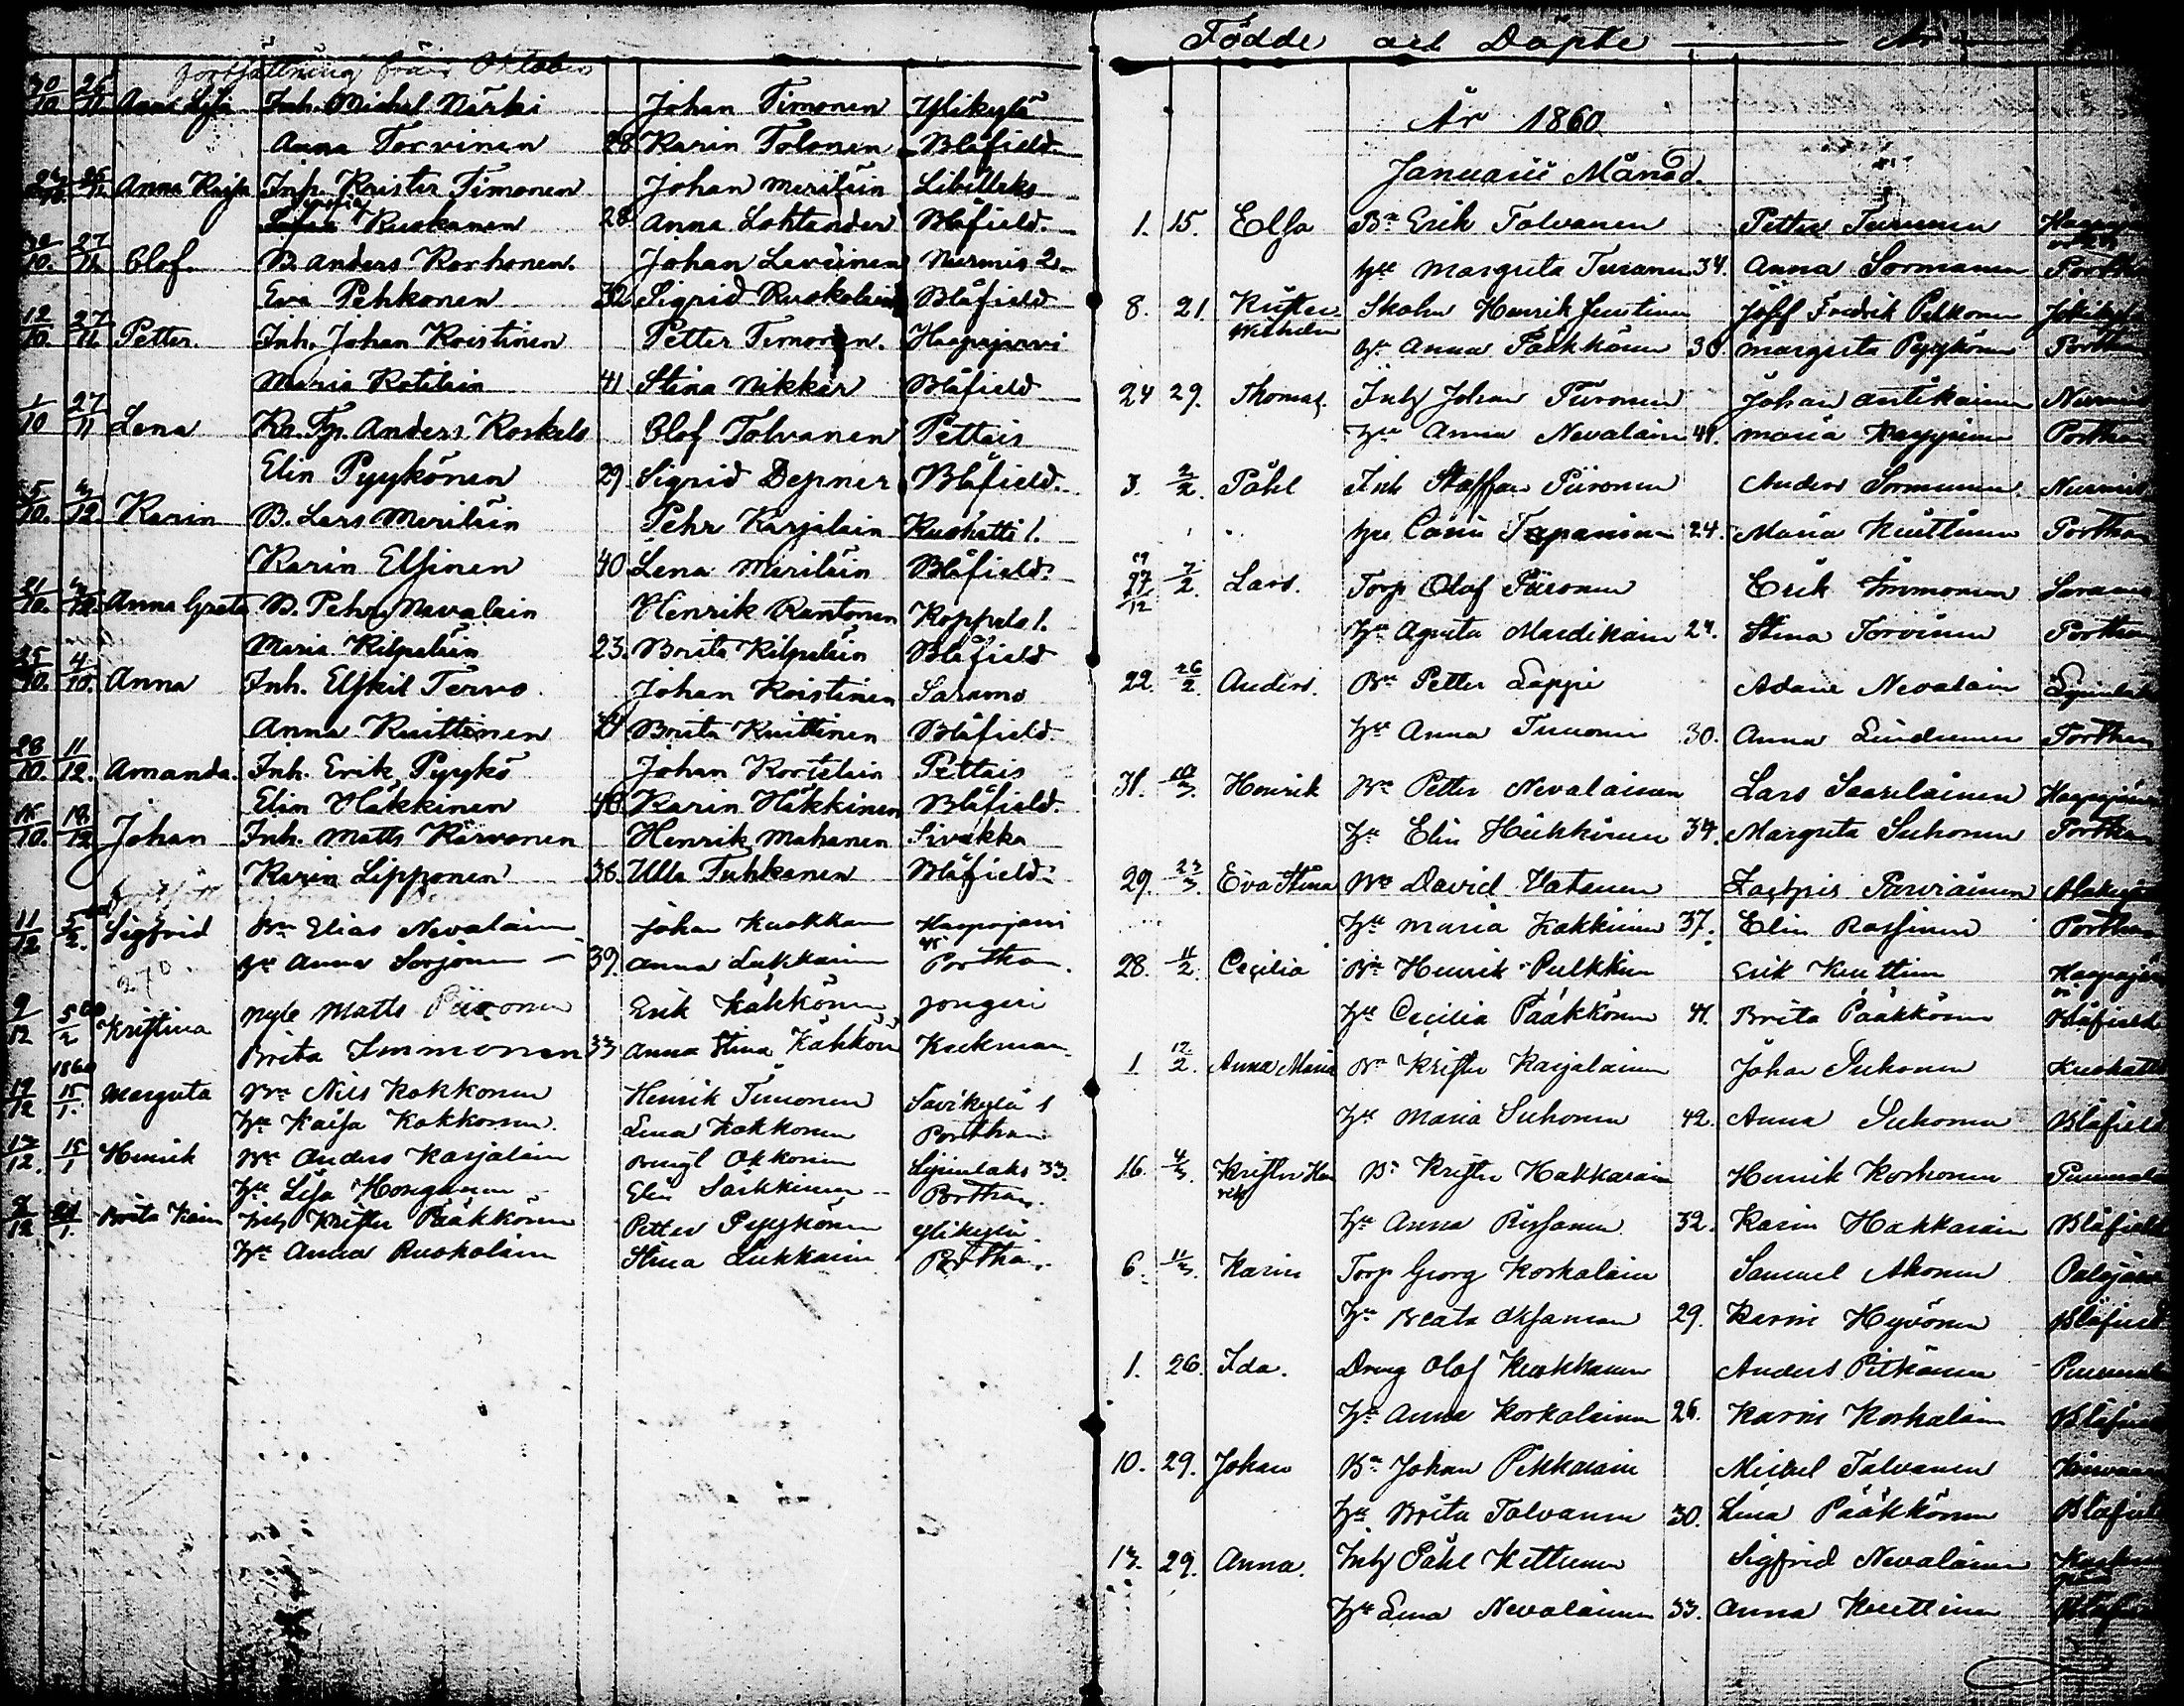 fortsättning från Oktober
30/10 26/11 Anna Lisa Inh. Michel Märki Johan Timonen Ylikylä
Anna Torvinen 28 Karin Tolonen Blåfield
Anna Kaisa Inh. Krister Timonen Johan Meriläin Libelleks
Ruokanen 28 Anna Lohtander Blåfield.
27/11 Olof. B. Anders Korhonen. Johan Leväinen Nurmis 2.
Eva Pehkonen 32 Sigrid Ruokolain Blåfield
12/10 27/11 Petter. Inh. Johan Koistinen Petter Timonen. Haapajärvi
Maria Kotilain 41 Stina Nikkär Blåfield
1/10 27/11 Lena Kr. Tp. Anders Koskelo Olof Tolvanen Pettais
Elin Pyykönen 29. Sigrid Depner Blåfield.
5/10. 4/12 Karin B. Lars Meriläin Pehr Karjalain Kuohatti 1.
Karin Elsinen 40 Lena Meriläin Blåfield.
21/10. 4/12. Anna Greta B. Pehr Nevalain Henrik Rantonen Koppelo 1.
Maria Kilpeläin 23. Brita Kilpeläin Blåfield
25/10. 4/10. Anna Inh. Eskil Tervo Johan Koistinen Saramo
Anna Kuittinen 24 Brita Kuittinen Blåfield
28/10. 11/12. Amanda. Inh. Erik Pyykö Johan Kortelain Pettais
Elin Häkkinen 40 Karin Häkkinen Blåfield.
18/10. 18/12 Johan Inh. Matts Kärvonen Henrik Mahanen Sivakka
Karin Lipponen 36. Ulla Tuhkanen Blåfield
11/12 5/2. Sigfrid Bn Elias Nevalain Johan Kuokkan Haapajärvi
Hu Anna Sorjonen 39. Anna Lukkarin Porthan.
9/12 5/2 Kristina Nyb Matts Piironen Erik Kähkönen Jongeri
Brita Immonen 33 Anna Stina Kähkön Kuekman
1860
17/12 15/1. Margreta Bn Nils Kokkonen Henrik Timonen Savikylä 1
Hu Kaisa Kokkonen. Lena Kokkonen Porthan
17/12. 15/1 Henrik Bn Anders Karjalain Bengt Okkonen Lipinlaks 33.
Hu Lisa Hongunen Elin Sarkkinen Porthan.
9/12 21/1. Brita Karin Inh Krister Pääkkönen Petter Pyykönen Ylikylä.
Hu Anna Ruokolain Stina Lukkarin Portha.
Födde och Döpte År
År 1860
Januarii Månad.
1. 15. Elsa Bn Erik Tolvanen Petter Turunen
Hu Margreta Turanen 34. Anna Sormanen Portha
8. 21. Krister Wilhelm Skolm Henrik Josef Fredrik Pehkonen
Hu Anna Pääkkönen 38 Margreta Pyykönen Porthan
24 29. Thomas. Inh Johan Piironen Johan Antikainen Nurmis
Hu Anna Nevalain 41. Maria Porthan
3. 2/2. Påhl Inh Staffan Piironen Anders Sormunen. Nurmis
Hu Carin Tapaninen 24. Maria Kuittinen Porthan
59
27/12 7/2. Lars. Torp Olof Piironen Erik Immonen Saramo
Hu Agneta Mardikain 24. Stina Torvinen Porthan
22. 26/2. Anders. Bn Petter Lappi Adam Nevalain Lipinlak
Hu Anna Timonen 30. Anna Porthan
31. 10/3. Henrik Bn Petter Nevalainen Lars Saarelainen Haapajärvi
Hu Elin Heikkinen 34. Margreta Suhonen Porthan
29. 23/3. Eva Stina Bn David Vatanen Zachris Parviainen Alakylä
Hu Maria Kakkinen 37. Elin Rassinen Porthan
28. 11/2. Cecilia Bn Henrik Pulkkin Erik Kuittin Haapajärvi
Hu Cecilia Pääkkönen 41. Brita Pääkkönen Blåfield
1 12/2. Anna Maria Bn Krister Karjalainen Johan Suhonen Kuohatti
Hu Maria Suhonen 42. Anna Suhonen Blåfield
16. 4/3. Krister Henrik Bn Krister Hakkarain Henrik Korhonen
Hu Anna 32. Karin Hakkarain Blåfield
6. 11/3. Karin Torp Georg Korkalain Samuel Ahonen Palojärv
Hu Beata Oksanen 29. Karin Hyvönen Blåfield
1. 26. Ida. Dreng Olof Kuokkanen Anders Pitkänen
Hu Anna Korkalainen 26. Karin Korkalain Blåfield
10. 29. Johan Bn Johan Pekkarain Michel Tolvanen
Hu Brita Tolvanen 30. Lena Pääkkönen Blåfield
13. 29. Anna. Inh Påhl Kettunen Sigfrid Nevalainen
Hu Lena Nevalainen 33. Anna Kuittinen Blåfi